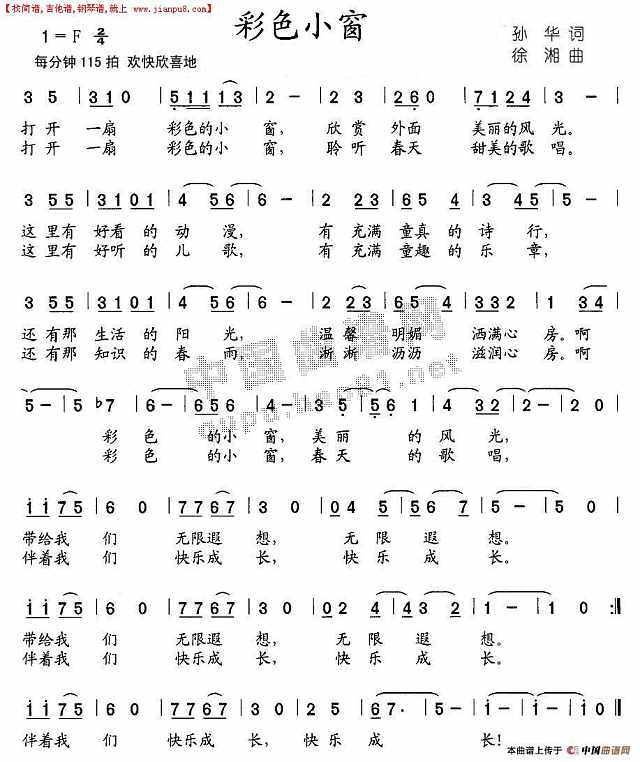 【找简谱,吉他谱,钢琴谱,就上 www.jianpu8.com】
彩色小窗
1=F 2/4
孙 华 词
每分钟 115 拍 欢快欣喜地
徐 湘 曲
3 5 | 310 | 51113 | 3 - | 2 23 | 260 | 7124 | 2 - |
打 开 一扇 彩色的小 窗, 欣 赏 外面 美丽的风 光。
打 开 一扇 彩色的小 窗, 聆 听 春天 甜美的歌 唱。
3 55 | 3101 | 4 56 | 6 - | 2 23 | 65 4 | 3 45 | 5 - |
这 里有 好看 的 动 漫, 有 充满 童真 的 诗 行,
这 里有 好听 的 儿 歌, 有 充满 童趣 的 乐 章,
还 有那 生活 的 阳 光, 温 馨 明媚 洒满心 房。啊
还 有那 知识 的 春 雨, 淅 淅 沥沥 滋润心 房。啊
5 - | 5 ♭7 | 6 - | 656 | 4 - | 3 5 | 56 1 | 4 32 | 2 - | 20 |
彩 色 的小 窗, 美 丽 的 风 光,
彩 色 的小 窗, 春 天 的 歌 唱,
1175 | 6 0 | 7767 | 3 0 | 04 5 | 56 7 | 1 - | 1 0 |
带给我 们 无限遐 想, 无 限 遐 想。
伴着我 们 快乐成 长, 快 乐 成 长。
1175 | 6 0 | 7767 | 3 0 | 02 4 | 43 2 | 1 - | 1 0 :||
带给我 们 无限遐 想, 无 限 遐 想。
伴着我 们 快乐成 长, 快 乐 成 长。
1175 | 6 0 | 7767 | 3 0 | 2 5 | 67· | 5 - | 1 - | 1 0 ||
伴着我 们 快乐成 长, 快 乐 成 长!
本曲谱上传于 中国曲谱网